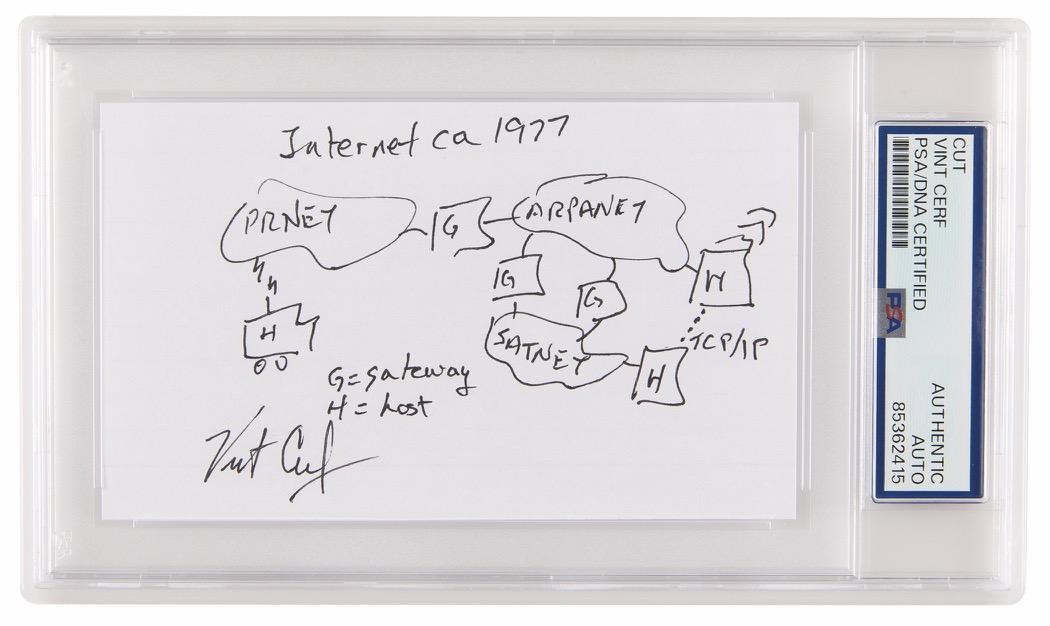 Internet ca 1977
PRNET
G
ARPANET
H
G
G
H
SATNET
TCP/IP
H
G = gateway
H = host
Vint Cerf
CUT
VINT CERF
PSA/DNA CERTIFIED
PSA
AUTHENTIC
AUTO
85362415